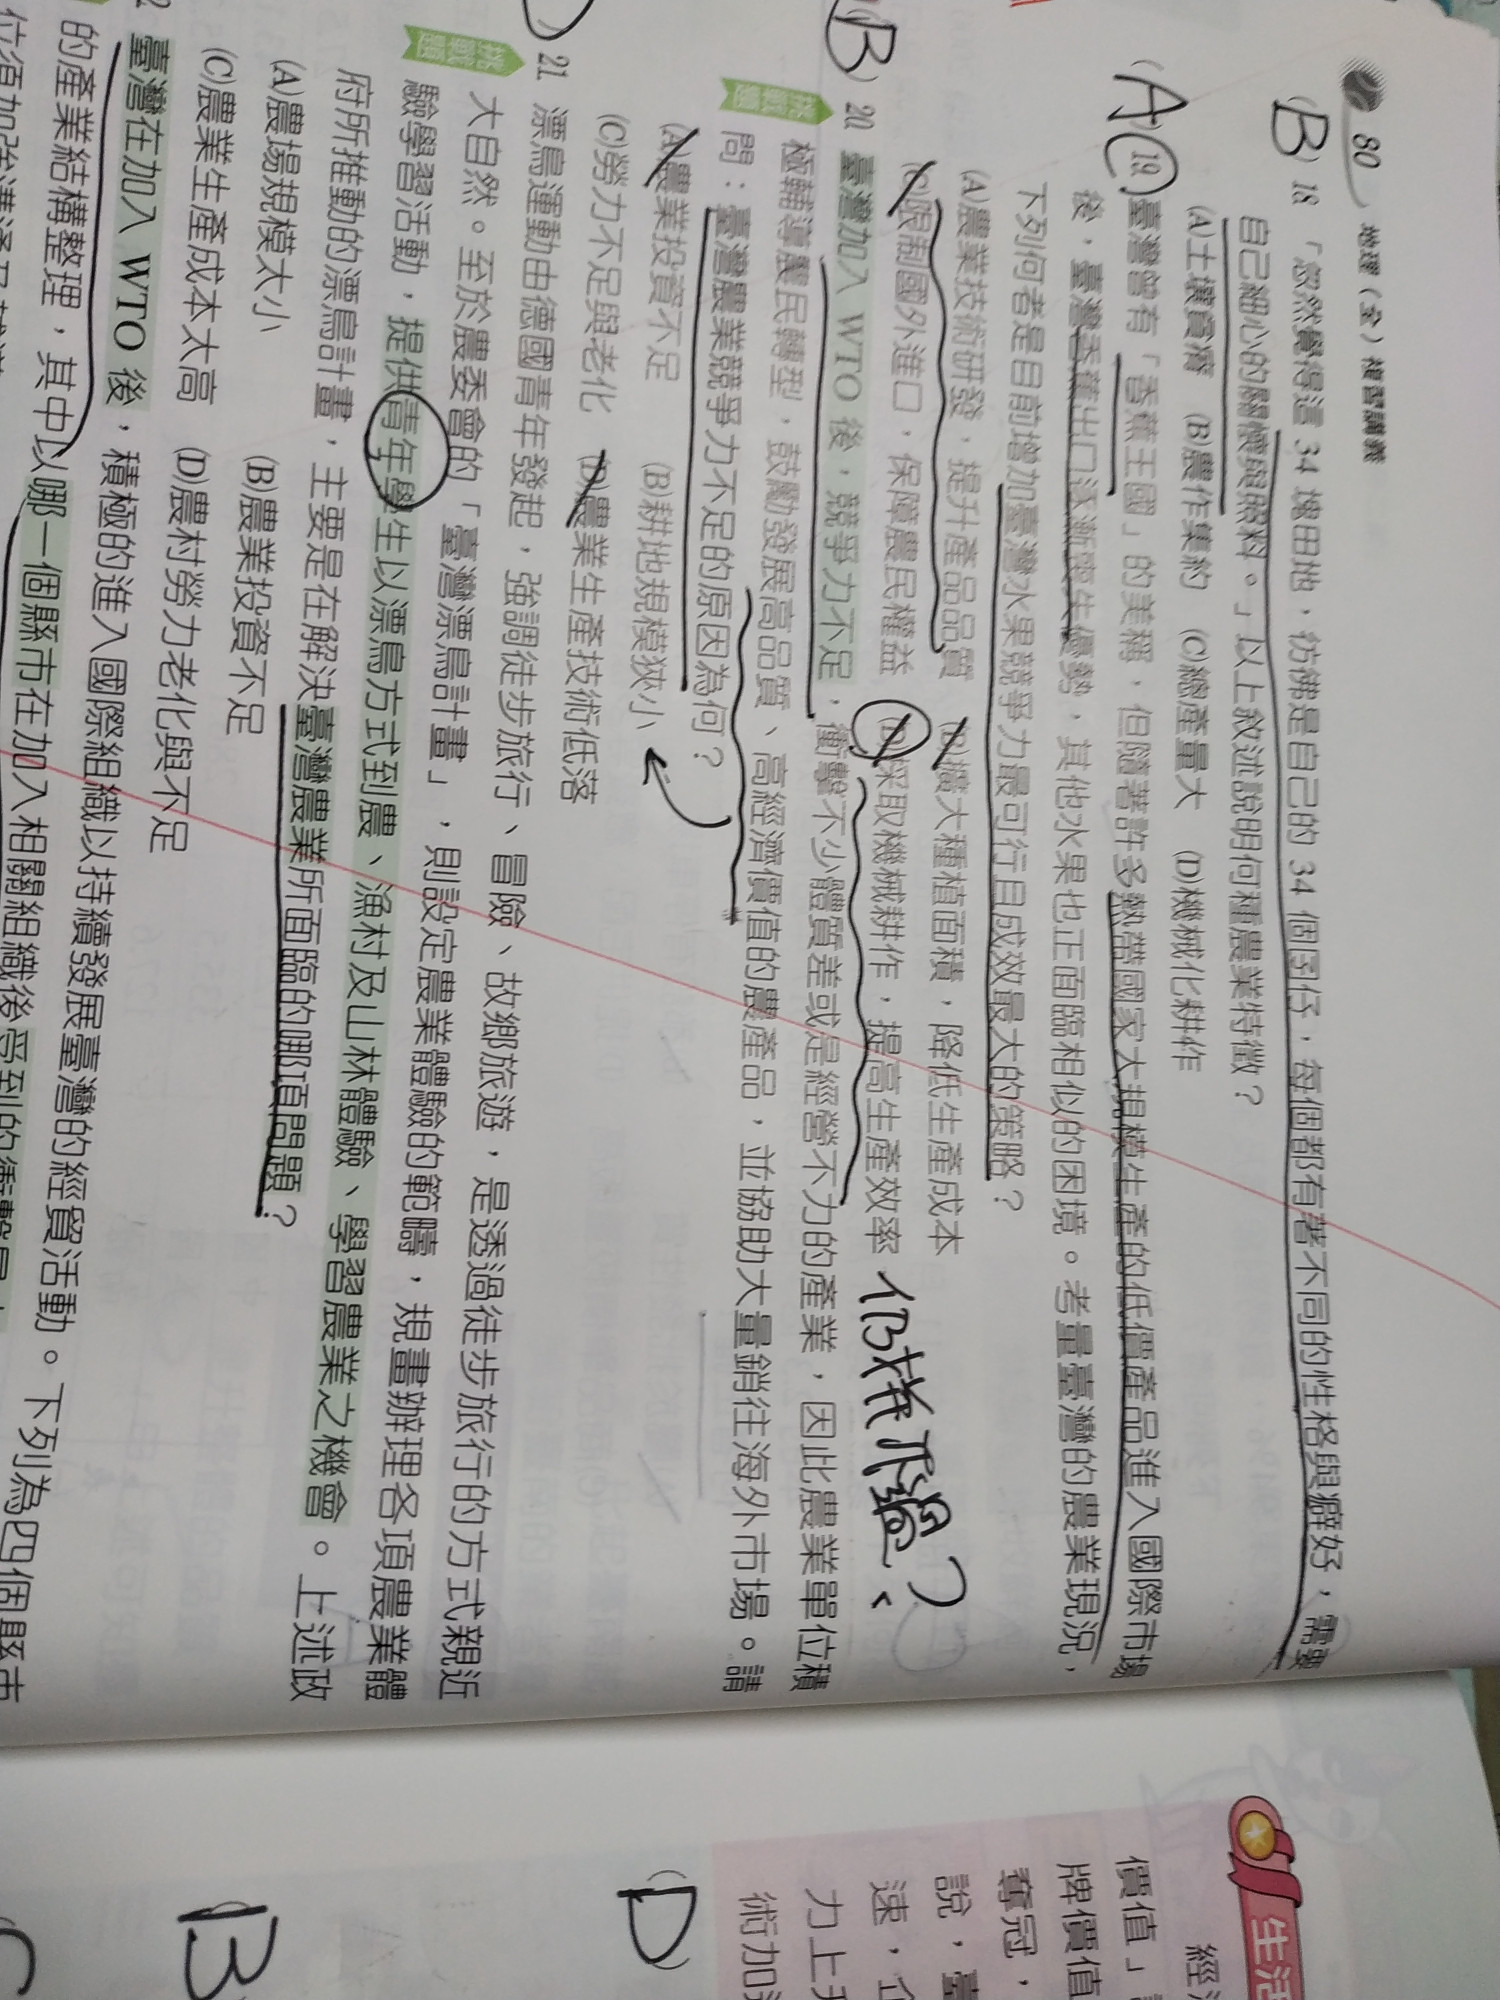 80 地理(全)複習講義
(B) 18 「忽然覺得這 34 塊田地，彷彿是自己的 34 個囝仔，每個都有著不同的性格與癖好，需要
自己細心的關懷與照料。」以上敘述說明何種農業特徵？
(A)土壤貧瘠 (B)農作集約 (C)總產量大 (D)機械化耕作
(A) 19 臺灣曾有「香蕉王國」的美稱，但隨著許多熱帶國家大規模生產的低價產品進入國際市場
後，臺灣香蕉出口逐漸喪失優勢，其他水果也正面臨相似的困境。考量臺灣的農業現況，
下列何者是目前增加臺灣水果競爭力最可行且成效最大的策略？
(A)農業技術研發，提升產品品質 (B)擴大種植面積，降低生產成本
(C)限制國外進口，保障農民權益 (D)採取機械耕作，提高生產效率
(B) 20 臺灣加入 WTO 後，競爭力不足，衝擊不少體質差或是經營不力的產業，因此農業單位積
挑戰題 極輔導農民轉型，鼓勵發展高品質、高經濟價值的農產品，並協助大量銷往海外市場。請
問：臺灣農業競爭力不足的原因為何？
(A)農業投資不足 (B)耕地規模狹小
(C)勞力不足與老化 (D)農業生產技術低落
21 漂鳥運動由德國青年發起，強調徒步旅行、冒險、故鄉旅遊，是透過徒步旅行的方式親近
挑戰題 大自然。至於農委會的「臺灣漂鳥計畫」，則設定農業體驗的範疇，規畫辦理各項農業體
驗學習活動，提供青年學生以漂鳥方式到農、漁村及山林體驗、學習農業之機會。上述政
府所推動的漂鳥計畫，主要是在解決臺灣農業所面臨的哪項問題？
(A)農場規模太小 (B)農業投資不足
(C)農業生產成本太高 (D)農村勞力老化與不足
2 臺灣在加入 WTO 後，積極的進入國際組織以持續發展臺灣的經貿活動。下列為四個縣市
的產業結構整理，其中以哪一個縣市在加入相關組織後受到的衝擊最
生活
經
價值」
牌價值
奪冠，
說，臺
速，企
力上升
術加
(D)
(B
C